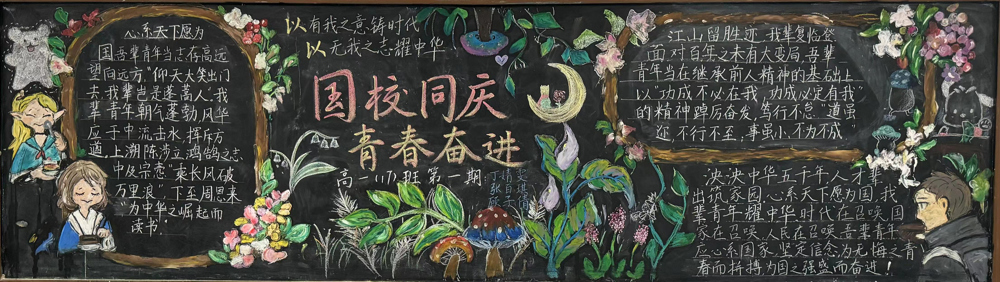 心系天下愿为
国吾辈青年当志存高远
望向远方."仰天大笑出门
去,我辈岂是蓬蒿人".我
辈青年朝气蓬勃,风华
应于中流击水,挥斥方
遒,上溯陈涉立鸿鹄之志
中及宗悫"乘长风破
万里浪",下至周恩来
"为中华之崛起而
读书".
以有我之意铸时代
以无我之志耀中华
国校同庆
青春奋进
高一(17)班第一期
江山留胜迹,我辈复临登
面对百年之未有大变局,吾辈
青年当在继承前人精神的基础上
以"功成不必在我,功成必定有我"
的精神踔厉奋发,笃行不怠."道虽
迩,不行不至,事虽小,不为不成"
泱泱中华五千年人才辈
出筑家园,心系天下愿为国,我
辈青年耀中华时代在召唤,国
家在召唤,人民在召唤,吾辈青年
应心系国家,坚定信念,为无悔之青
春而拼搏,为国之强盛而奋进!